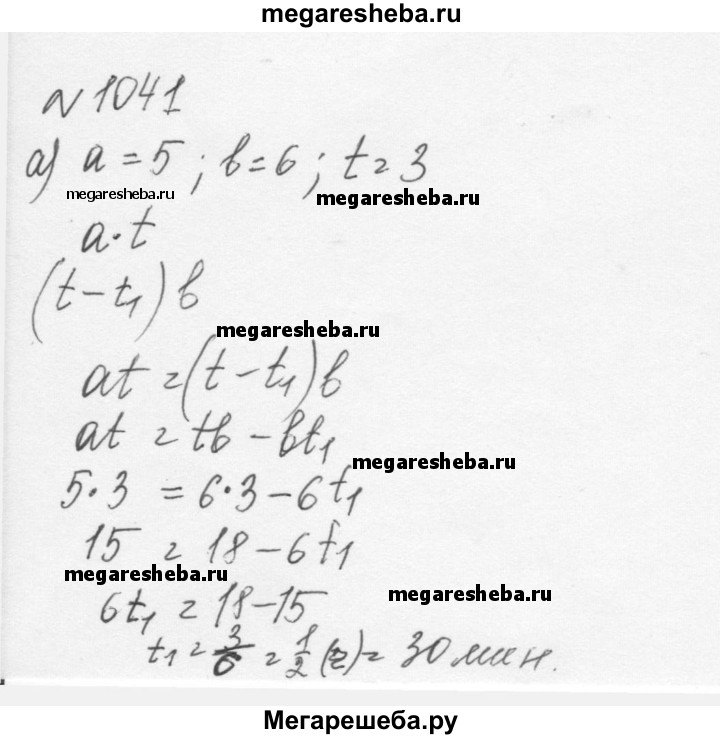 megaresheba.ru
№1041
а) a = 5 ; b = 6 ; t = 3
megaresheba.ru
megaresheba.ru
a · t
(t - t₁) b
megaresheba.ru
at = (t - t₁) b
at = tb - bt₁
megaresheba.ru
5 · 3 = 6 · 3 - 6t₁
15 = 18 - 6t₁
megaresheba.ru
6t₁ = 18 - 15
megaresheba.ru
t₁ = 3/6 = 1/2 (г) = 30 мин.
Мегарешеба.ру